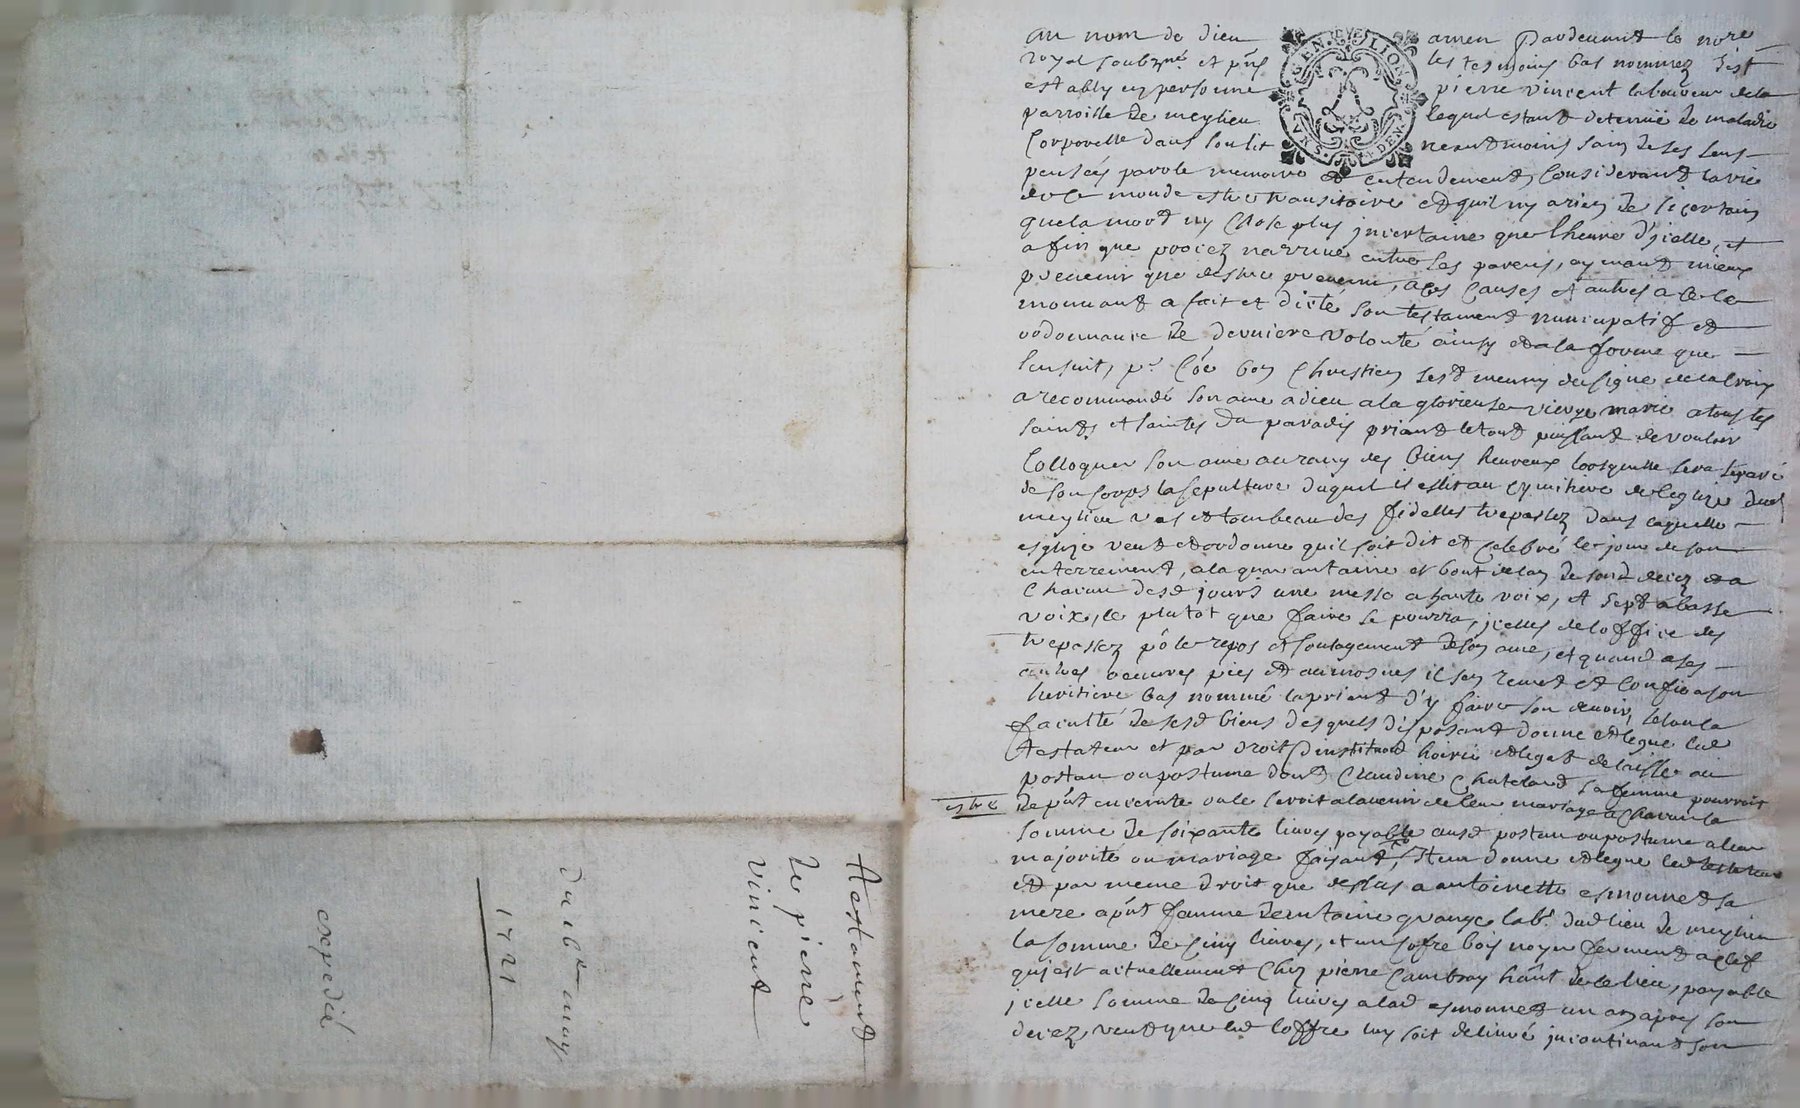 au nom de dieu amen Pardevant le nore
royal soubzné et pnts les tesmoins bas nommez s'est
estably en personne pierre vincent laboureur de la
parroisse de meylieu lequel estant detenüe de maladie
Corporelle dans son lit neantmoins sain de ses sens
pensées parole memoire et entendement, Considerant la vie
de ce monde estre transitoire et quil ny a rien de si certain
que la mort ny chose plus jncertaine que l'heure d'jcelle, et
afin que procez narrive entre ses parens, aymant mieux
prevenir que destre prevenu, a ces Causes et autres a ce le
mouvant a fait et dicté son testament nuncupatif et
ordonnance de derniere volonté ainsy et a la forme que
sensuit, pr Cõe bon Chrestien s'est meuny du signe de la croix
a recommandé son ame a dieu a la glorieuse vierge marie a tous les
saints et saintes du paradis priant le tout puissant de vouloir
Colloquer son ame au rang des biens heureux lorsquelle sera separé
de son Corps la sepulture duquel il eslit au cymitiere de leglize dud
meylieu vas et tombeau des fidelles trepassez dans laquelle
esglize veut et ordonne quil soit dit et Celebré le jour de son
enterrement, a la quarantaine et bout de lan de sond decez et a
Chacun desd jours une messe a haute voix, et sept a basse
voix, le plutot que faire se pourra, jcelles de loffice des
trepassez põ le repos et soulagement de son ame, et quand a ses
autres oeuvres pies et aumosnes il sen remet et Confie a son
heritiere bas nommé la priant d'y faire son devoir, selon la
faculté de sesd biens desquels disposant donne et legue led
testateur et par droit d'institution hoirie et legat delaisse au
postau ou postume dont Claudine Chateland sa femme pourroit
estre de pnt enceinte ou le seroit a lavenir de leur mariage a Chacun la
somme de soixante livres payable ausd postau ou postume a leur
majorité ou mariage faisant, Item donne et legue led testateur
et par meme droit que dessus a antoinette esmonnet sa
mere a pnt femme dentaine grange labr dud lieu de meylieu
la somme de Cinq livres, et un cofre bois noyer fermant a clef
qui est actuellement Chez pierre Cambray hant de ce lieu, payable
jcelle somme de Cinq livres a lad esmonnet un an apres son
decez, veut que led Coffre luy soit delivré jncontinant son
testament
de pierre
vincent
du 16e may
1721
expedié
GEN. LION